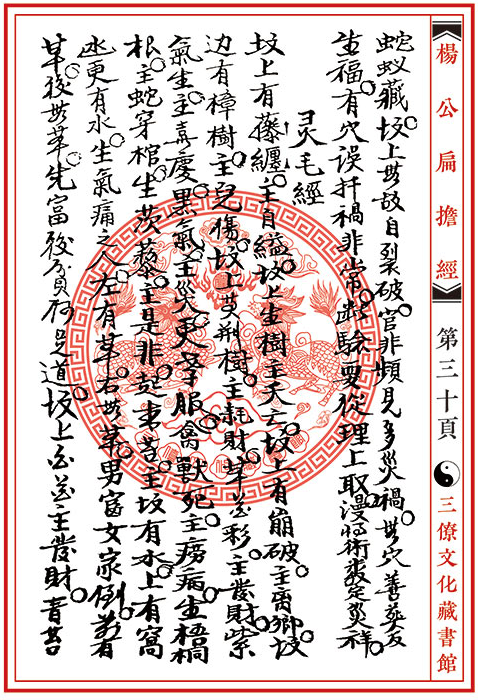 楊公扁擔經
第三十頁
三僚文化藏書館
蛇蚁藏。坟上無故自裂破。官非頻見多災禍。無穴善葬反
生福。有穴误扦禍非常。断驗要從理上取。漫將術定災祥。
灵毛經
坟上有藤纏。主自縊。坟上生樹主夭亡。坟上有崩破。主离鄉。坟
边有樟樹。主兒傷。坟上荊樹。主耗財。草彩。主發財。紫
氣生。主喜慶。黑氣。主災更孝服。禽獸死。主癆病。生梧桐
根。主蛇穿棺。生茨藜。主是非起。主坟有水。上有窩
氹更有水。生氣痛之人。左有草。右無草。男富女家例。前有
草。後無草。先富後貧道。坟上主發財。青苔